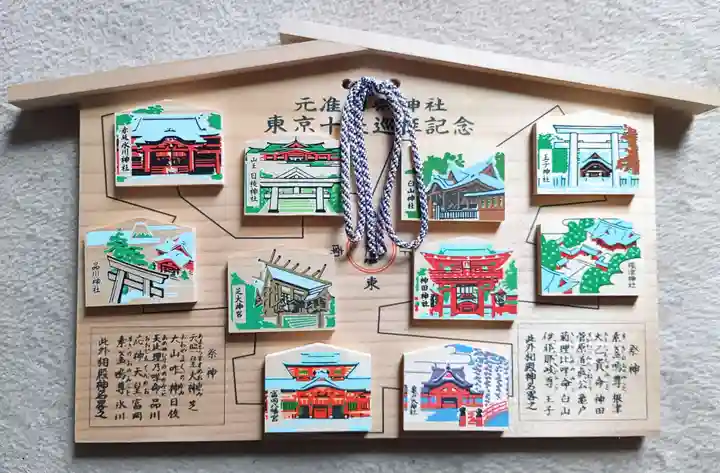 元准 神社
東京十 巡拝記念
赤坂氷川神社
山王日枝神社
白山神社
王子神社
品川神社
芝大神宮
神田神社
根津神社
富岡八幡宮
亀戸天神社
東
祭神
天照皇大神 芝
大山咋神 日枝
天比理乃咩命 品川
応神天皇 富岡
素盞嗚尊 氷川
此外相殿神名畧之
祭神
素盞嗚尊 根津
大己貴命 神田
菅原道真公 亀戸
菊理比咩命 白山
伊弉那岐尊 王子
此外相殿神名畧之